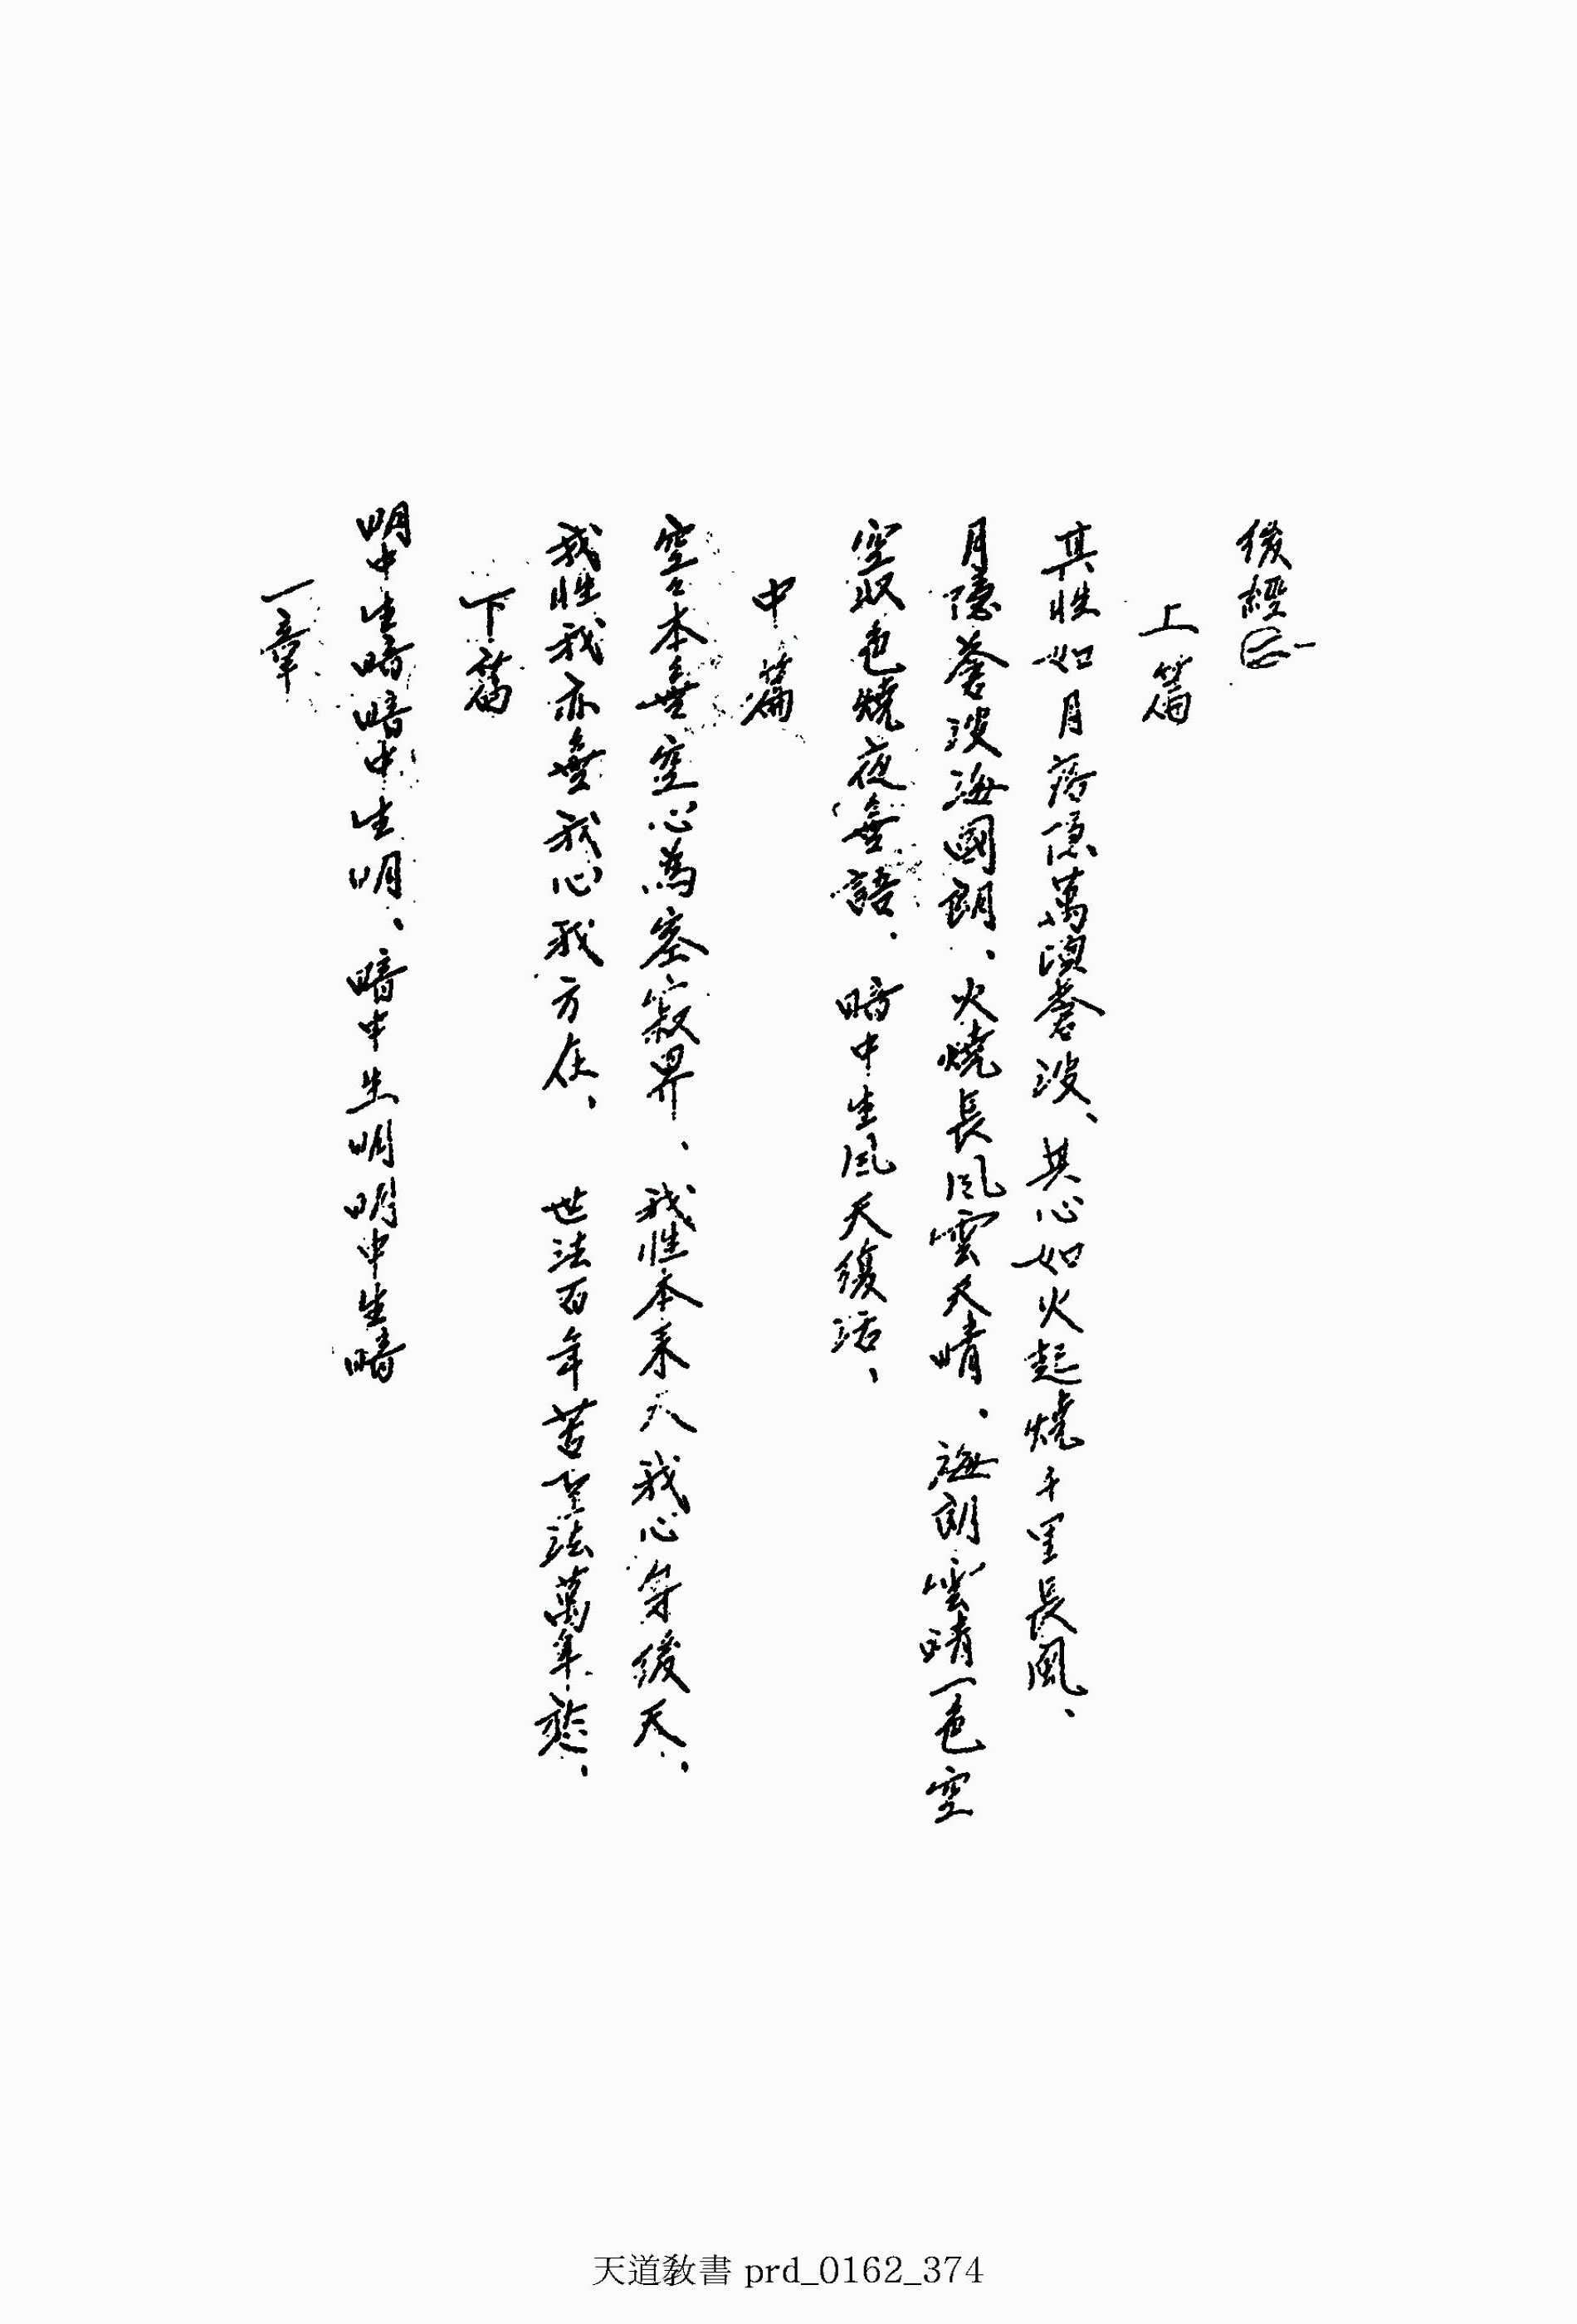 後經㊁
上篇
其性如月落隱萬頃蒼波、其心如火起燒千里長風、
月隱蒼波海國朗、火燒長風雲天晴、海朗雲晴一色空
空收色燒夜無語、暗中生風天復活、
中篇
空々本無空心為塞寂界、我性本來天我心身後天、
我性我亦無我心我方在、世法百年苦聖法萬年愁、
下篇
明中生暗暗中生明、暗中生明明中生暗
一章
天道敎書 prd_0162_374